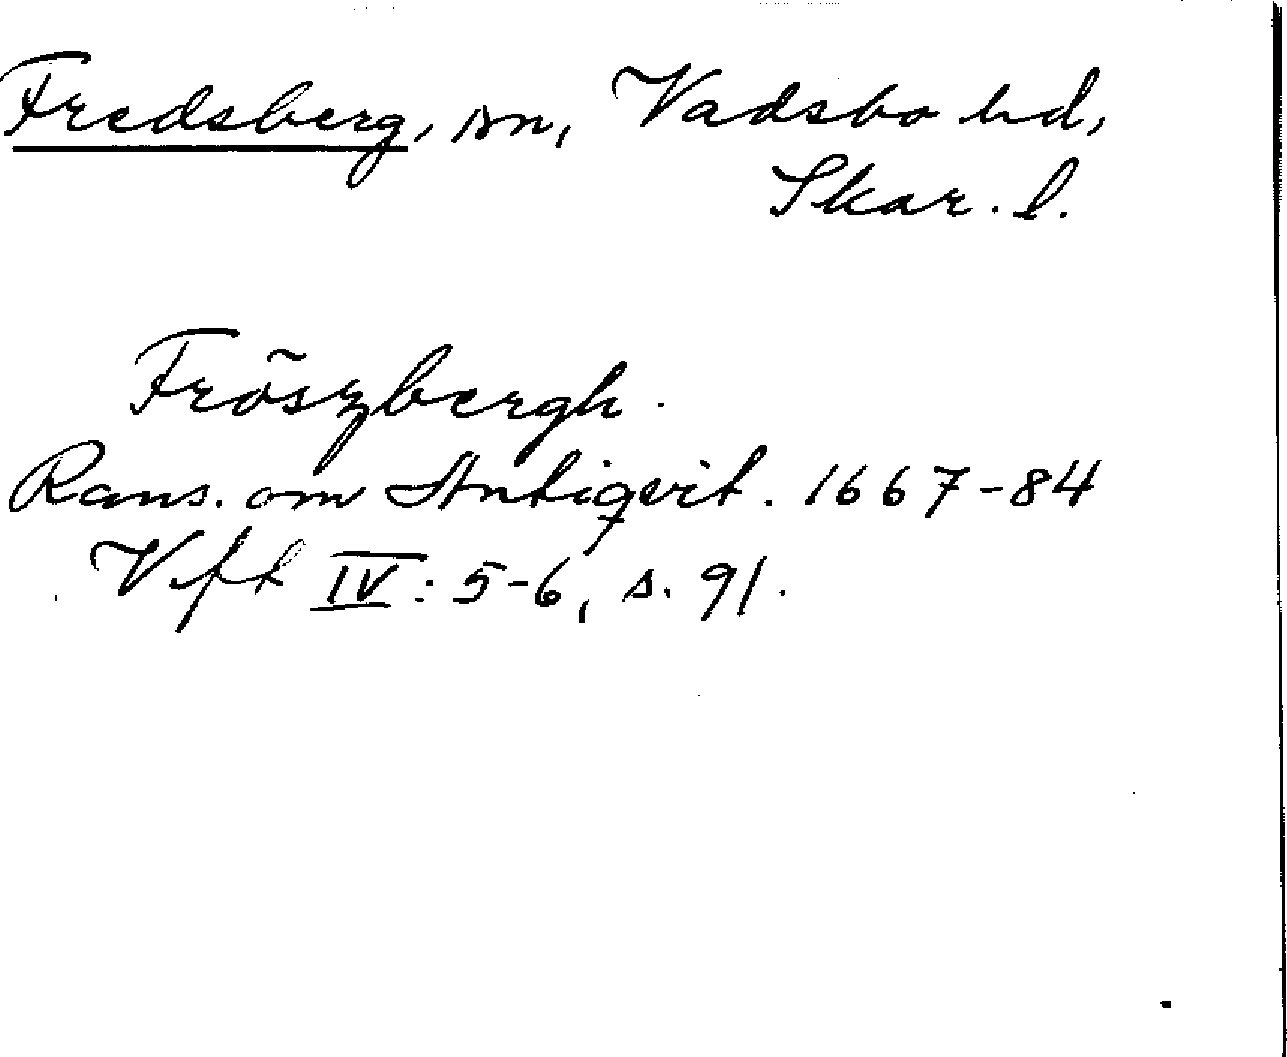 Fredsberg, sn, Vadsbo hd,
Skar. l.
Fröszbergh.
Rans. om Antiqvit. 1667-84
Vfft IV: 5-6, s. 91.